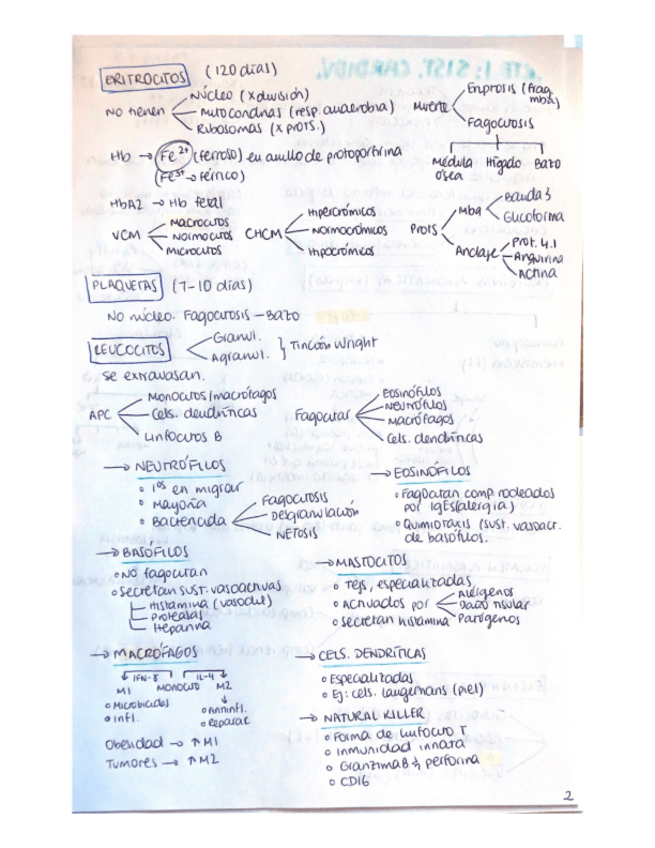 ERITROCITOS (120 días)
No tienen
Núcleo (x división)
Mitocondrias (resp. anaerobia)
Ribosomas (x prots.)
Muerte
Enprosis (frag. mba)
Fagocitosis
Médula ósea Hígado Bazo
Hb → Fe2+ (ferroso) en anillo de protoporfirina
(Fe3+ → férrico)
HbA2 → Hb fetal
VCM
Macrocitos
Normocitos
Microcitos
CHCM
Hipercrómicos
Normocrómicos
Hipocrómicos
Prots
Mba
Banda 3
Glucoforina
Anclaje
Prot. 4.1
Anquirina
Actina
PLAQUETAS (7-10 días)
No núcleo. Fagocitosis - Bazo
LEUCOCITOS
Granul.
Agranul.
} Tinción Wright
Se extravasan.
APC
Monocitos/macrófagos
Cels. dendríticas
Linfocitos B
Fagocitar
Eosinófilos
Neutrófilos
Macrófagos
Cels. dendríticas
→ NEUTRÓFILOS
◦ 1os en migrar
◦ Mayoría
◦ Bactericida
Fagocitosis
Desgranulación
NETosis
→ EOSINÓFILOS
◦ Fagocitan comp. rodeados
por IgEs (alergia)
◦ Quimiotaxis (sust. vasoact.
de basófilos.
→ BASÓFILOS
◦ No fagocitan
◦ Secretan sust. vasoactivas
Histamina (vasodil)
Proteasas
Heparina
→ MASTOCITOS
◦ Tejs. especializadas
◦ Activados por
Alérgenos
Daño tisular
Patógenos
◦ Secretan histamina
→ MACRÓFAGOS
↓ IFN-γ IL-4 ↓
M1 Monocito M2
◦ Microbicidas
◦ Infl.
◦ Antiinfl.
◦ Reparac
Obesidad → ↑ M1
Tumores → ↑ M2
→ CELS. DENDRÍTICAS
◦ Especializadas
◦ Ej: cels. langerhans (piel)
→ NATURAL KILLER
◦ Forma de linfocito T
◦ Inmunidad innata
◦ Granzima B y perforina
◦ CD16
2